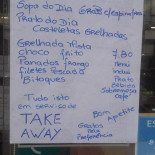 Sopa do Dia Grãos c/espinafres
Prato do Dia
Costeletas Grelhadas
Grelhada Mista
choco frito 7.80
Panados frango
filetes Pescada
Bitoques
Sobremesa
café
Tudo isto
em serviço de
TAKE
AWAY
Bom apetite
Gratos
Preferência